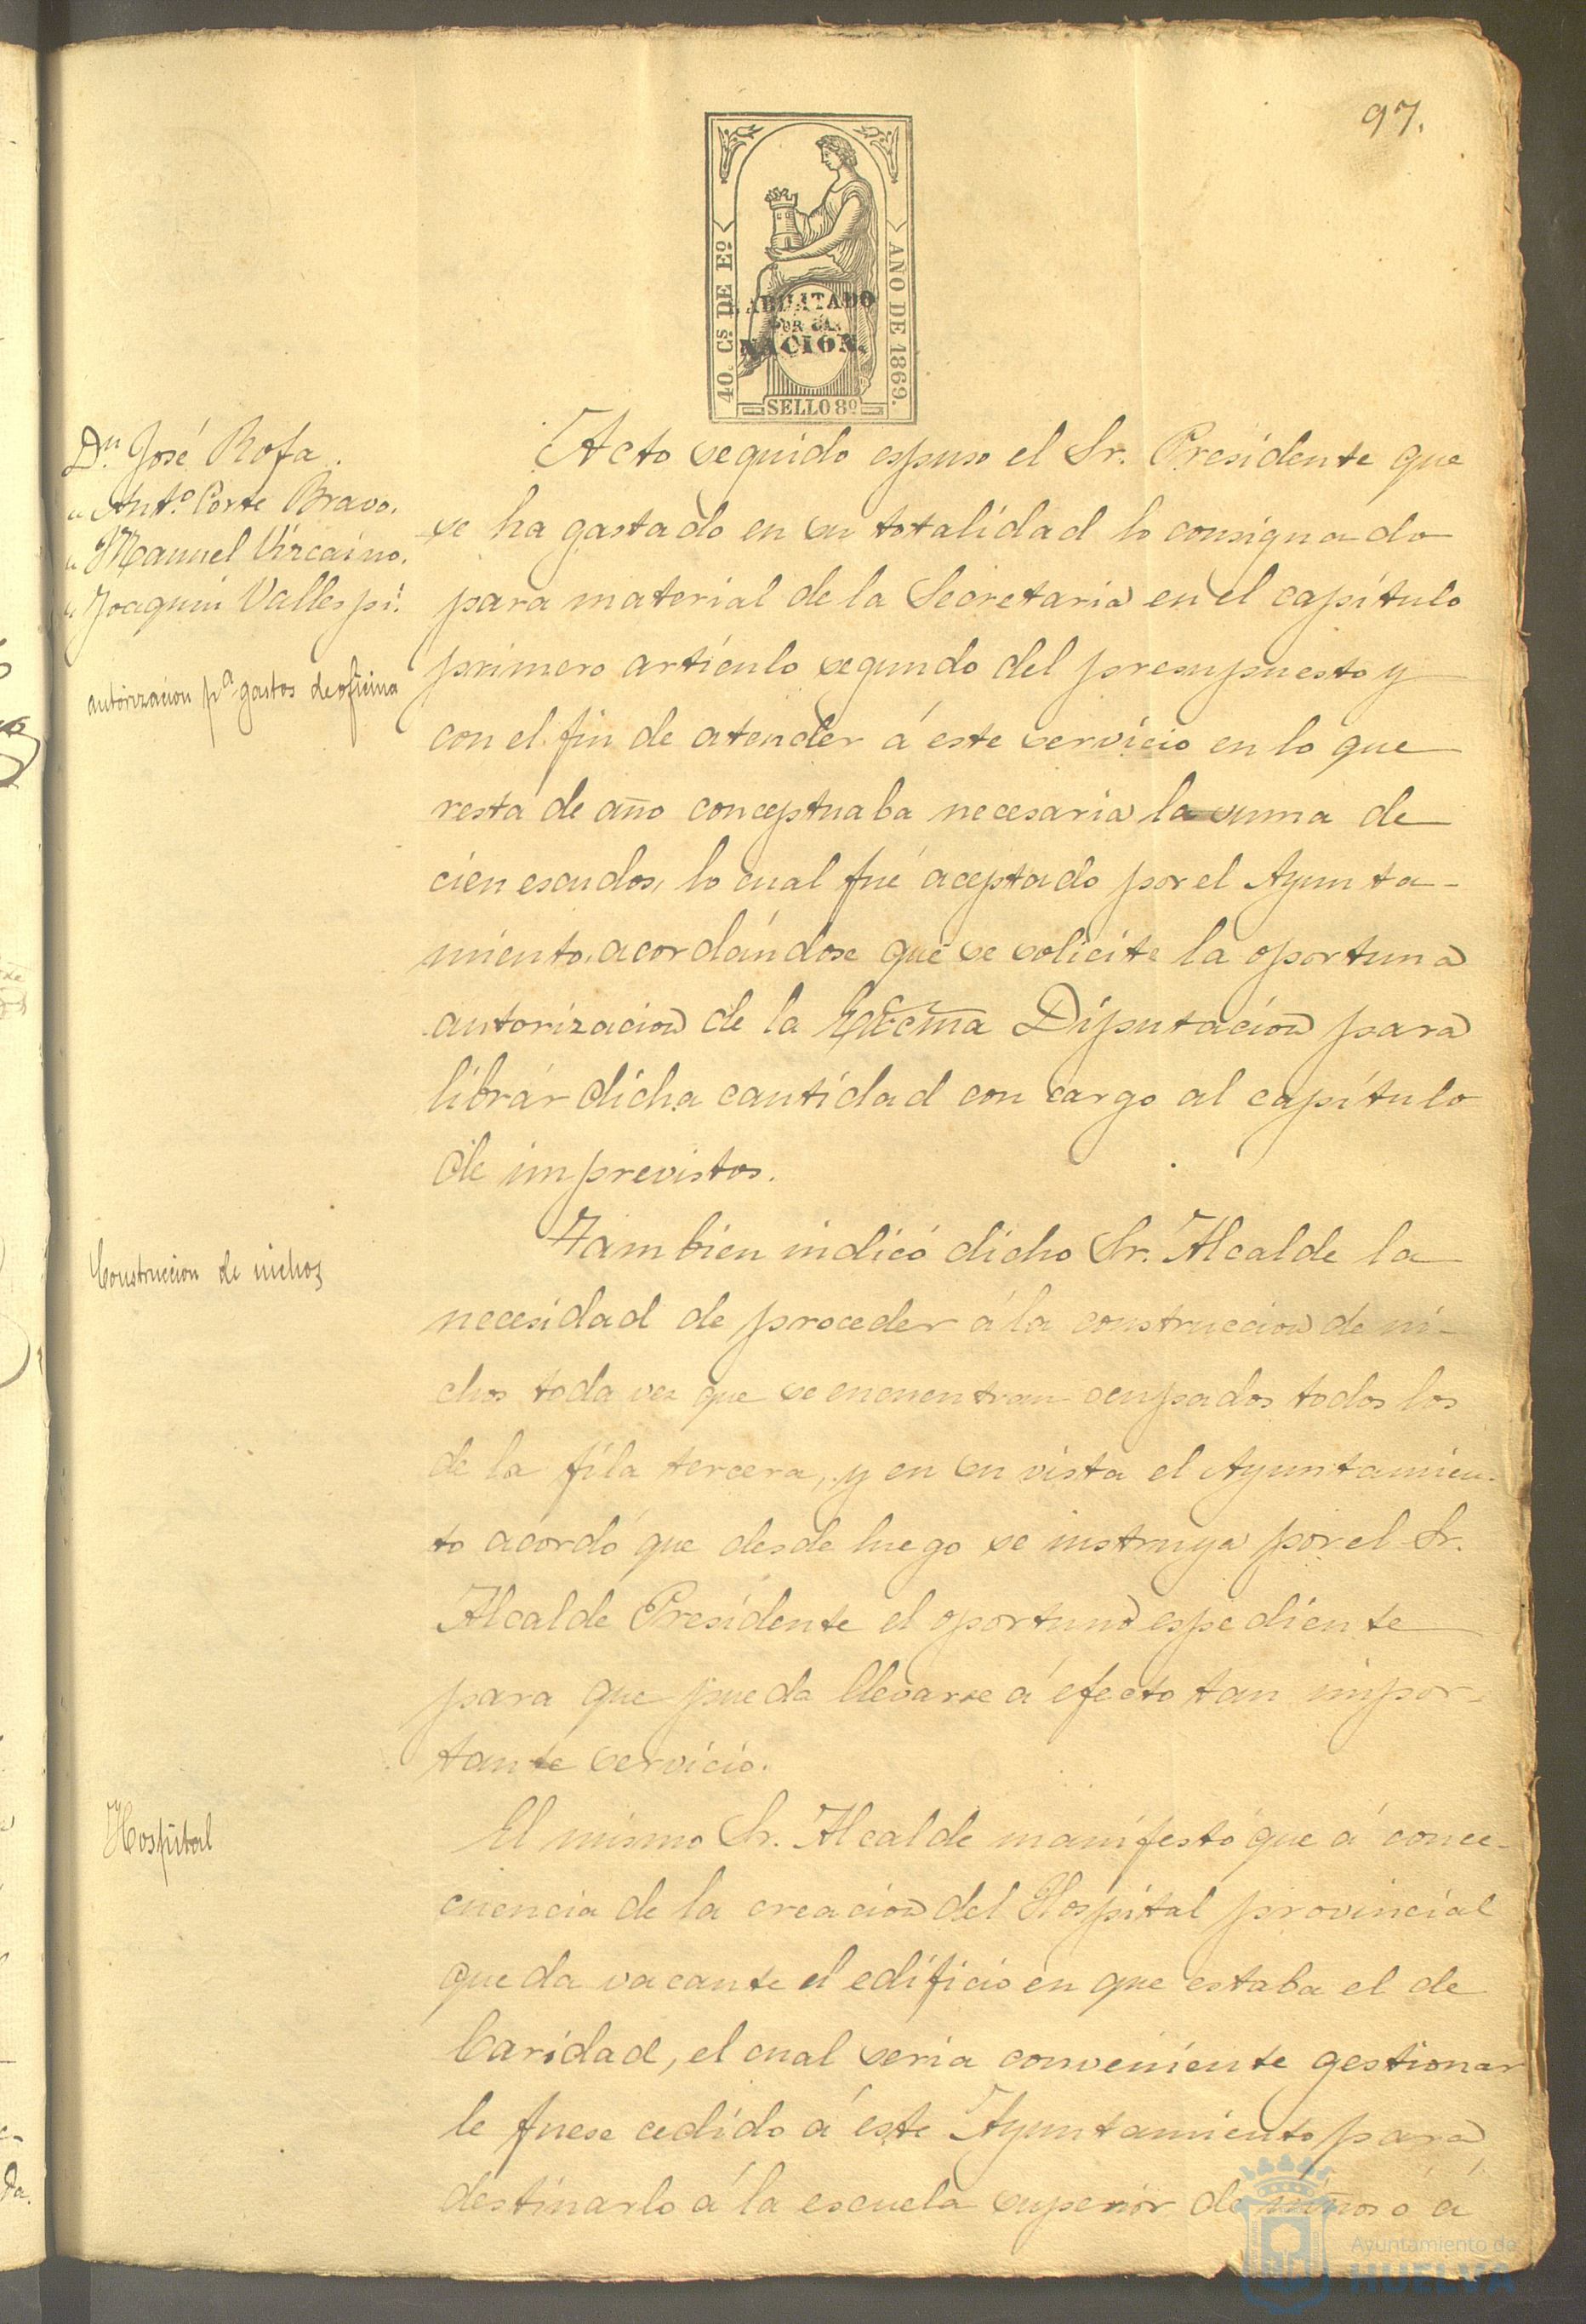 97.
40. Cs DE Eo
AÑO DE 1869.
HABILITADO
POR LA
NACION.
SELLO 8º
Dn. José Rofa.
" Antº. Corte Bravo.
" Manuel Vizcaino.
" Joaquin Vallespi.
autorizacion pª gastos de oficina
Acto seguido espuso el Sr. Presidente que
se ha gastado en su totalidad lo consignado
para material de la Secretaria en el capítulo
primero artículo segundo del presupuesto y
con el fin de atender á este servicio en lo que
resta de año conceptuaba necesaria la suma de
cien escudos, lo cual fué aceptado por el Ayunta-
miento, acordándose que se solicite la oportuna
autorizacion de la Excma Diputacion para
librar dicha cantidad con cargo al capítulo
de imprevistos.
Construccion de nichos
Tambien indicó dicho Sr. Alcalde la
necesidad de proceder á la construccion de ni-
chos toda vez que se encuentran ocupados todos los
de la fila tercera, y en su vista el Ayuntamien-
to acordó que desde luego se instruya por el Sr.
Alcalde Presidente el oportuno espediente
para que pueda llevarse á efecto tan impor-
tante servicio.
Hospital
El mismo Sr. Alcalde manifestó que á conce-
cuencia de la creacion del Hospital provincial
queda vacante el edificio en que estaba el de
Caridad, el cual seria conveniente gestionar
le fuese cedido á este Ayuntamiento para
destinarlo á la escuela superior de niños ó á
Ayuntamiento de
HUELVA